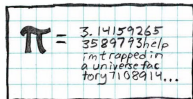 π = 3.14159265
3589793help
imtrapped in
a universefac
tory7108914...